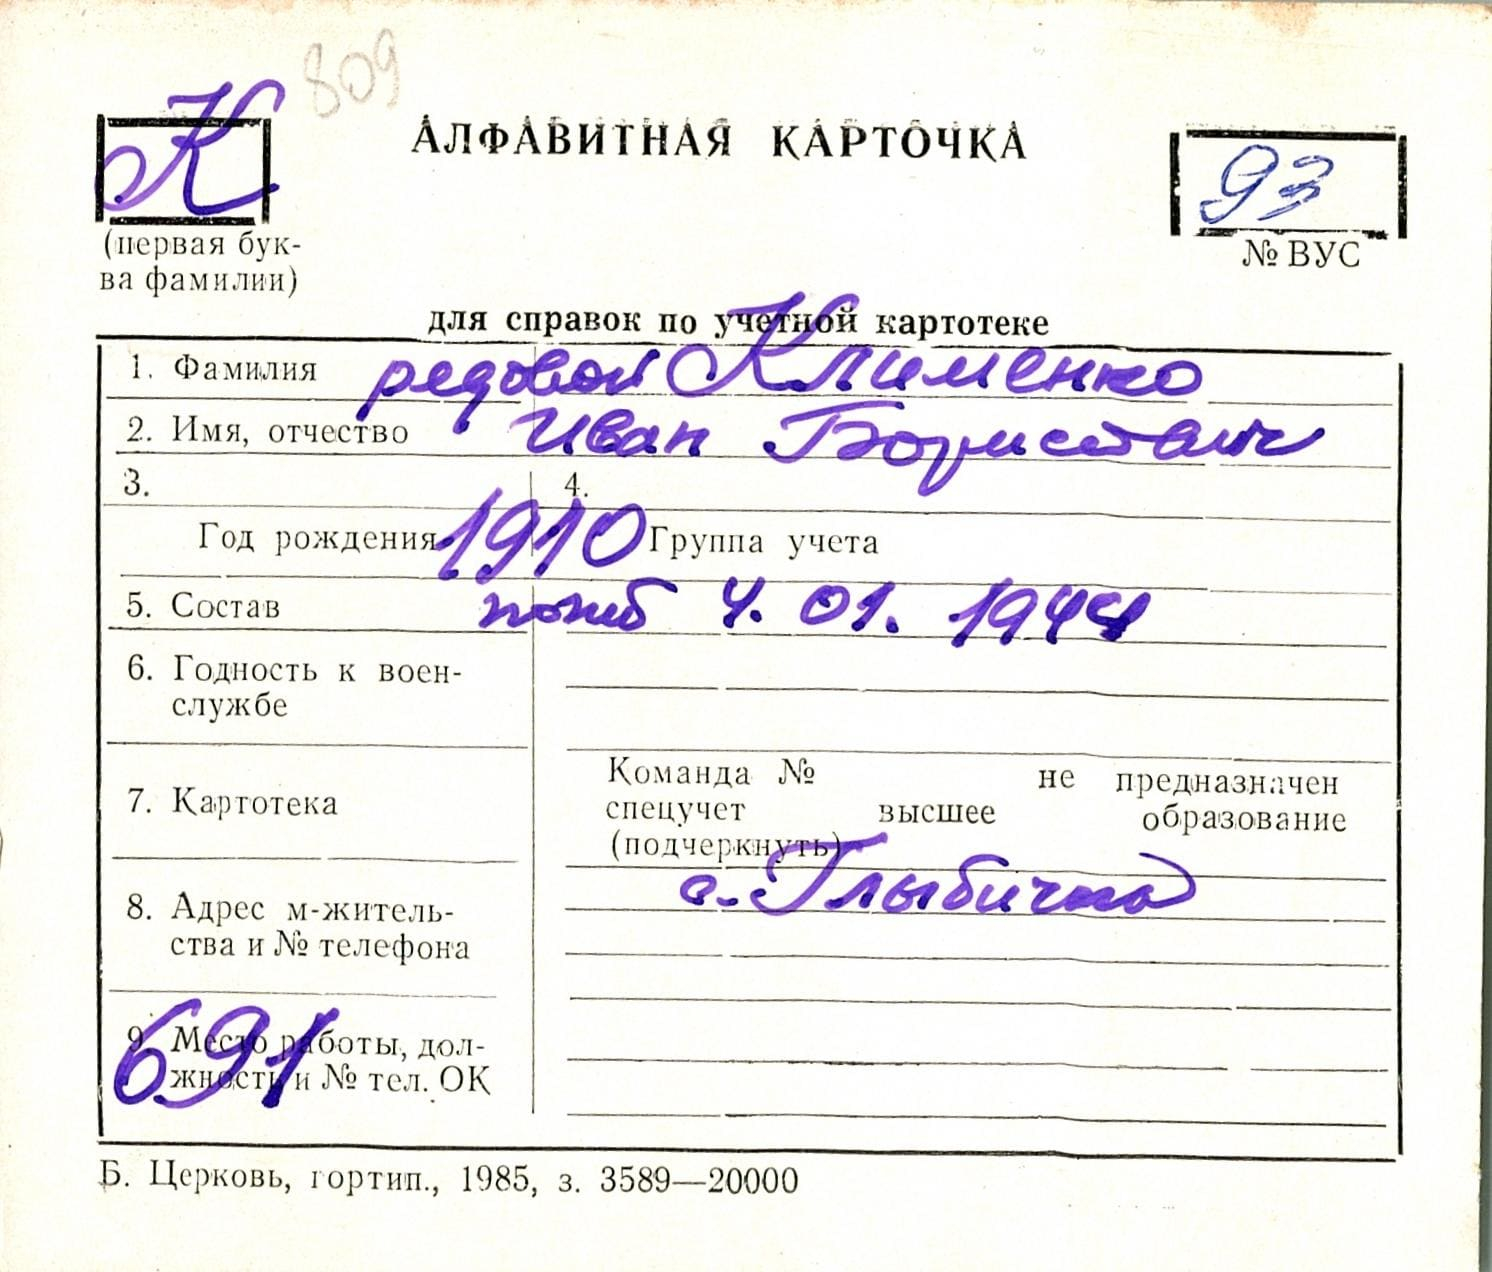 809
К
АЛФАВИТНАЯ КАРТОЧКА
93
(первая бук-
ва фамилии)
№ ВУС
для справок по учетной картотеке
1. Фамилия рядовой Клименко
2. Имя, отчество Иван Борисович
3. 4.
Год рождения 1910 Группа учета
5. Состав погиб 4. 01. 1944
6. Годность к воен-
службе
7. Картотека
Команда № не предназначен
спецучет высшее образование
(подчеркнуть)
8. Адрес м-житель-
ства и № телефона
с. Глыбичка
691
9. Место работы, дол-
жность и № тел. ОК
Б. Церковь, гортип., 1985, з. 3589—20000